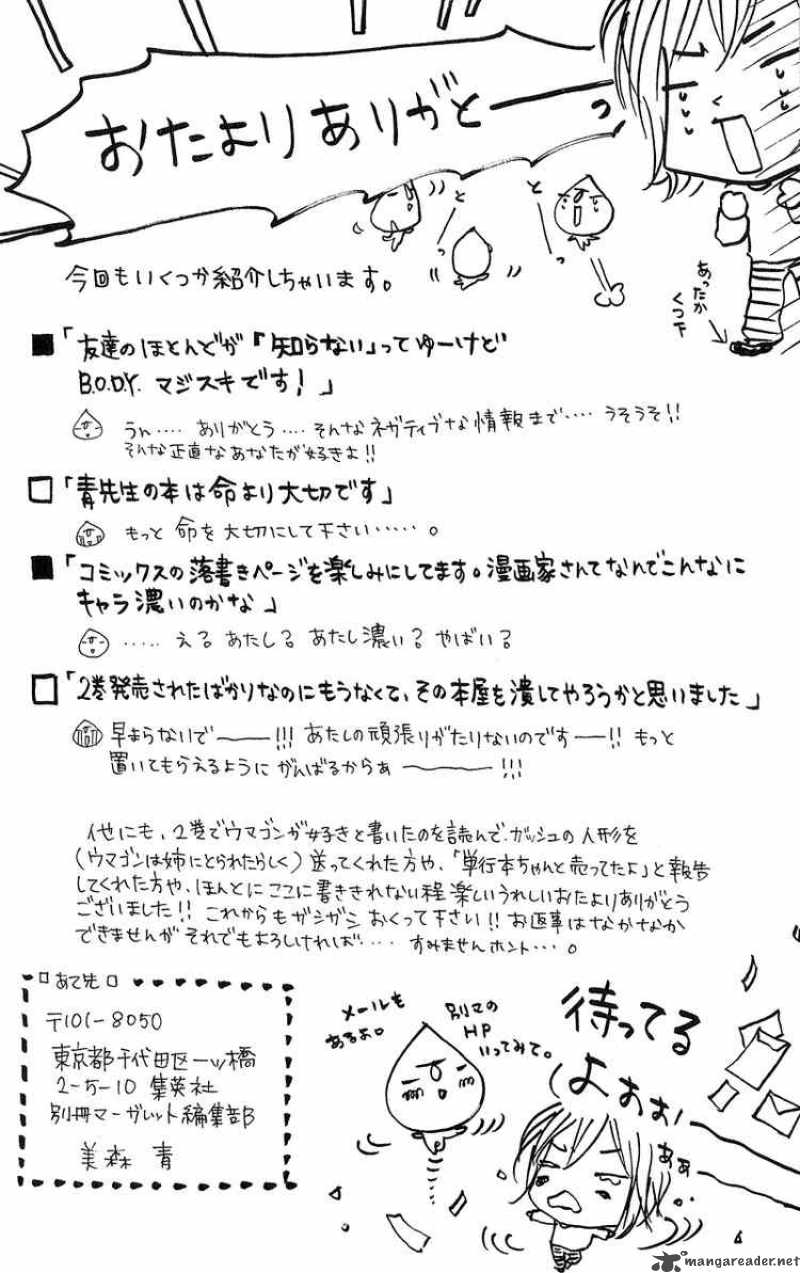 おたよりありがとーーっ
とっ
とっ
あったか
くつ下
今回もいくつか紹介しちゃいます。
■「友達のほとんどが『知らない」ってゆーけど
B.O.D.Y. マジスキです!」
うん‥‥ ありがとう‥‥ そんなネガティブな情報まで‥‥ うそうそ!!
そんな正直なあなたが好きよ!!
□「青先生の本は命より大切です」
もっと 命を大切にして下さい‥‥‥。
■「コミックスの落書きページを楽しみにしてます。漫画家さんてなんでこんなに
キャラ濃いのかな」
‥‥‥ え? あたし? あたし濃い? やばい?
□「2巻発売されたばかりなのにもうなくて、その本屋を潰してやろうかと思いました」
早まらないで――!!! あたしの頑張りがたりないのです―!! もっと
置いてもらえるように がんばるからぁ ―――!!!
他にも、2巻でウマゴンが好きと書いたのを読んで、ガッシュの人形を
(ウマゴンは姉にとられたらしく)送ってくれた方や、「単行本ちゃんと売ってたよ」と報告
してくれた方や、ほんとにここに書ききれない程楽しいうれしいおたよりありがとう
ございました!! これからもガシガシ おくって下さい!! お返事はなかなか
できませんが それでもよろしければ‥‥ すみませんホント‥‥。
□あて先□
〒101-8050
東京都千代田区一ツ橋
2-5-10 集英社
別冊マーガレット編集部
美森 青
メールも
あるよ。
別マの
HP
いってみて。
待ってる
よぉぉぉ
ぁぁ
mangareader.net